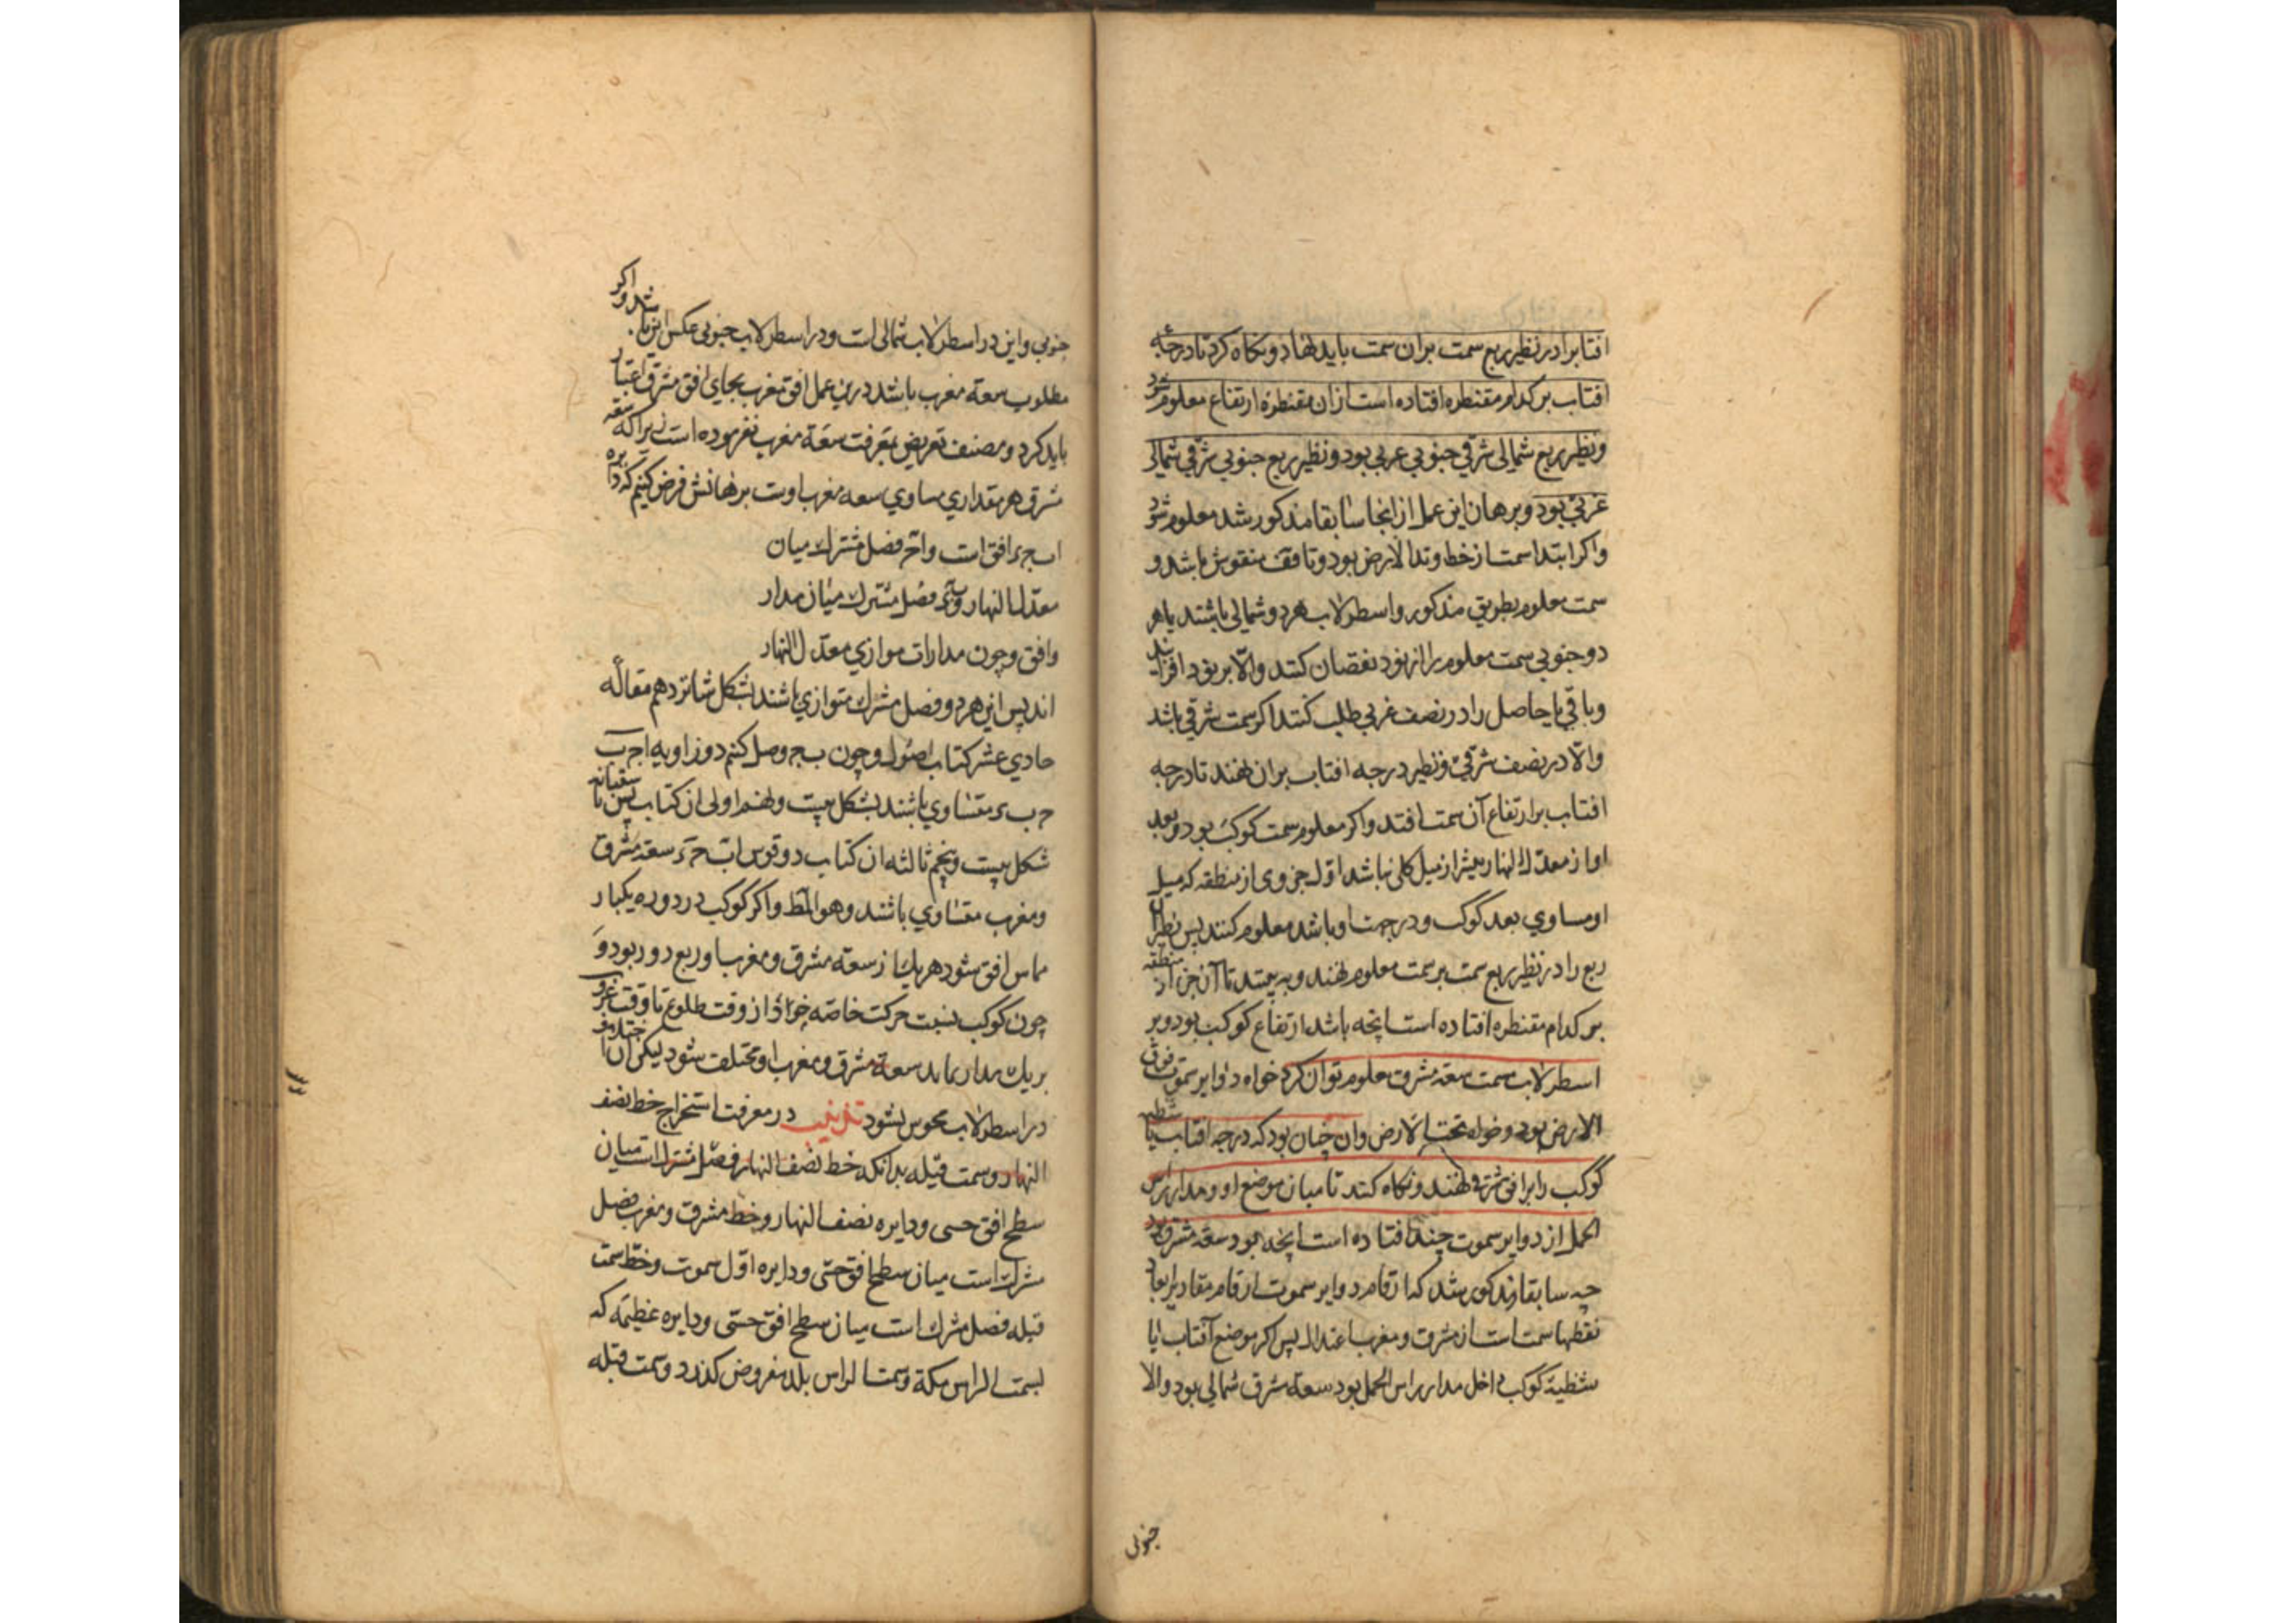 افتابرا در نظیر ربع سمت بران سمت باید نهاد و نکاه کرد تا درجهٔ
افتاب بر کدام مقنطره افتاده است ازان مقنطره ارتفاع معلوم شود
و نظیر ربع شمالی شرقی جنوبی غربی بود و نظیر ربع جنوبی شرقی شمالی
غربی بود و برهان این عمل ازانجا سابقا مذکور شد معلوم شود
واکر ابتداء سمت از خط وتد الارض بود و تا فق منقوش باشد و
سمت معلوم بطریق مذکور و اسطرلاب هر دو شمالی باشند یا هر
دو جنوبی سمت معلوم را از نود نقصان کنند والّا بر نود افزایند
و باقی یا حاصل را در نصف غربی طلب کنند اکر سمت شرقی باشد
والّا در نصف شرقی و نظیر درجه افتاب بران نهند تا درجه
افتاب بر ارتفاع آن سمت افتد واکر معلوم سمت کوکب بود و بعد
او از معدل النهار بیشتر از میل کلی نباشد اوّل جزوی از منطقه که میل
او مساوی بعد کوکب و در جهت او باشد معلوم کنند پس نظیر آن
ربع را در نظیر ربع سمت بر سمت معلوم نهند و به بینند تا آن جزء از منطقه
بر کدام مقنطره افتاده است انچه باشد ارتفاع کوکب بود و بر
اسطرلاب سمت سعه مشرق معلوم توان کرد خواه دوایر سموت فوق
الارض بود و خواه تحت الارض و ان چنان بود که درجه افتاب یا شظیه
کوکب را بر افق شرقی نهند و نکاه کنند تا میان موضع او و مدار راس
الحمل از دوایر سموت چند افتاده است انچه بود سعه مشرق بود
چه سابقا مذکور شد که ارقام دوایر سموت ارقام مقادیر ابعاد
نقطها سمت است از مشرق و مغرب اعتدال پس اکر موضع آفتاب یا
شظیهٔ کوکب داخل مدار راس الحمل بود سعة مشرق شمالی بود والا
جنوبی
جنوبی و این در اسطرلاب شمالی است و در اسطرلاب جنوبی عکس این باشد و اکر
مطلوب سعة مغرب باشد درین عمل افق مغرب بجای افق مشرق اعتبار
باید کرد و مصنف تعریض بمعرفت سعة مغرب نفرموده است زیرا که سعه
مشرق هر مقداری مساوی سعه مغرب اوست برهانش فرض کنیم که دایره
اب ج ء افق است و ا ح فصل مشترک میان
معدل النهار و ب ء فصل مشترک میان مدار
وافق و چون مدارات موازی معدّل النهار
اند پس این هر دو فصل مشترک متوازی باشند بشکل شانزدهم مقالهٔ
حادی عشر کتاب اصول و چون ب ج وصل کنیم دو زاویه ا ح ب
ح ب ء متساوی باشند بشکل بیست و نهم اولی ازان کتاب پس با ستبانه
شکل بیست و پنجم ثالثه ان کتاب دو قوس اب ح ء سعه مشرق
و مغرب متساوی باشند و هو المط واکر کوکب در دوره یکبار
مماس افق شود هر یک از سعة مشرق و مغرب او ربع دور بود و
چون کوکب بسبت حرکت خاصّه خود از وقت طلوع تا وقت غروب
بر یک مدار نماند سعة مشرق و مغرب او مختلف شود لیکن ان اختلاف
در اسطرلاب محوس نشود تذنیب در معرفت استخراج خط نصف
النهار و سمت قبله بدانکه خط نصف النهار فصل مشترکست میان
سطح افق حسی و دایره نصف النهار و خط مشرق و مغرب فصل
مشترک است میان سطح افق حسّی و دایره اوّل سموت و خط سمت
قبله فصل مشترک است میان سطح افق حسّی و دایره عظیمه که
بسمت الراس مکة و سمت الراس بلد مفروض کذرد و سمت قبله